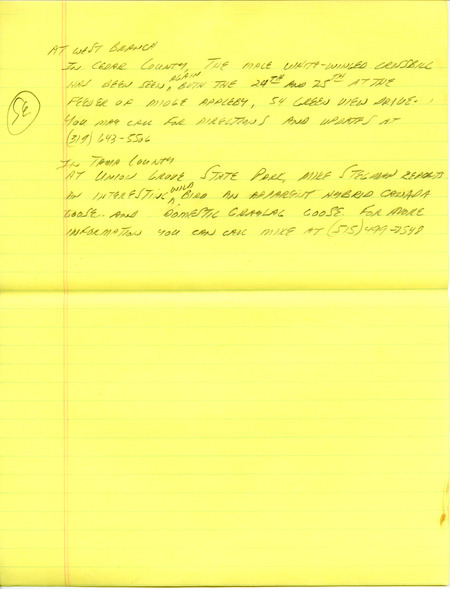 AT WEST BRANCH
IN CEDAR COUNTY, THE MALE WHITE-WINGED CROSSBILL
HAS BEEN SEEN, AGAIN BOTH THE 24TH AND 25TH AT THE
FEEDER OF MIDGE APPLEBY, 54 GREEN VIEW DRIVE.
YOU MAY CALL FOR DIRECTIONS AND UPDATES AT
(319) 643-5506
IN TAMA COUNTY
AT UNION GROVE STATE PARK, MIKE STEGMAN REPORTS
AN INTERESTING WILD BIRD AN APPARENT HYBRID CANADA
GOOSE AND DOMESTIC GRAYLAG GOOSE. FOR MORE
INFORMATION YOU CAN CALL MIKE AT (515) 499-2548